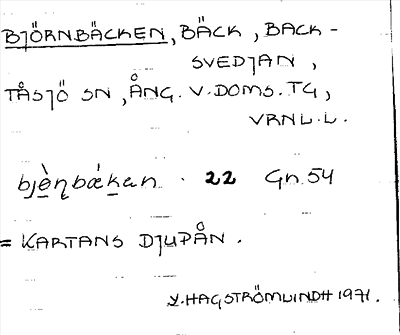 BJÖRNBÄCKEN, BÄCK, BACK-
SVEDJAN,
TÅSJÖ SN, ÅNG. V. DOMS. TG,
VRNL.L.
bjè̠ɳbæ̀k̠an · 22 Gn. 54
= KARTANS DJUPÅN.
Y. HAGSTRÖMLINDH 1971.